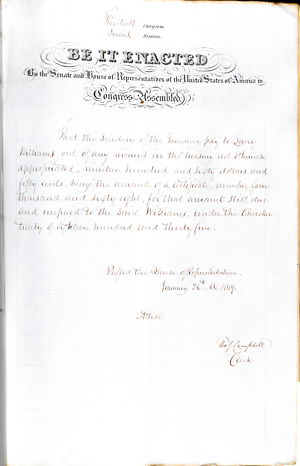 Thirtieth Congress
Second Session
BE IT ENACTED
By the Senate and House of Representatives of the United States of America in
Congress Assembled
That the Secretary of the Treasury pay to Lowry
Williams, out of any money in the treasury not otherwise
appropriated, nineteen hundred and sixty dollars and
fifty cents, being the amount of a certificate, number four
thousand and sixty eight, for that amount still due
and unpaid to the said Williams, under the Cherokee
treaty of eighteen hundred, and thirty five.
Passed the House of Representatives,
January 1849.
Attest
Campbell
Clerk